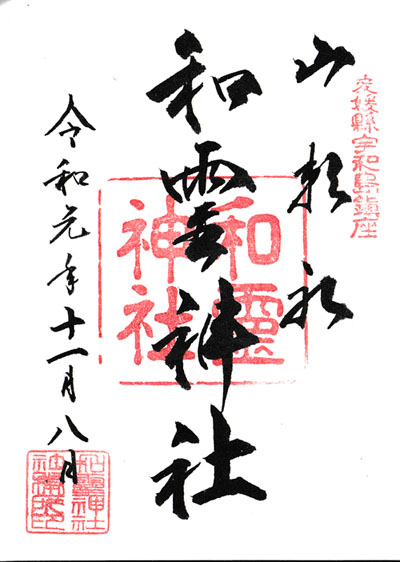 愛媛縣宇和島鎮座
山頼
和霊神社
和靈神社
令和元年十一月八日
和靈神社
社務所印